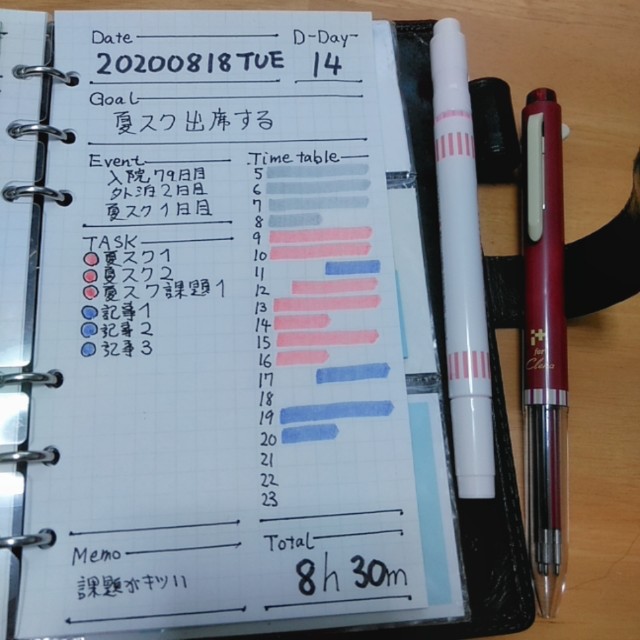 Date
20200818TUE
D-Day
14
Goal
夏スク出席する
Event
入院79日目
外泊2日目
夏スク1日目
TASK
夏スク1
夏スク2
夏スク課題1
記事1
記事2
記事3
Time table
5
6
7
8
9
10
11
12
13
14
15
16
17
18
19
20
21
22
23
Memo
課題がキツい
Total
8h 30m
for
Clena